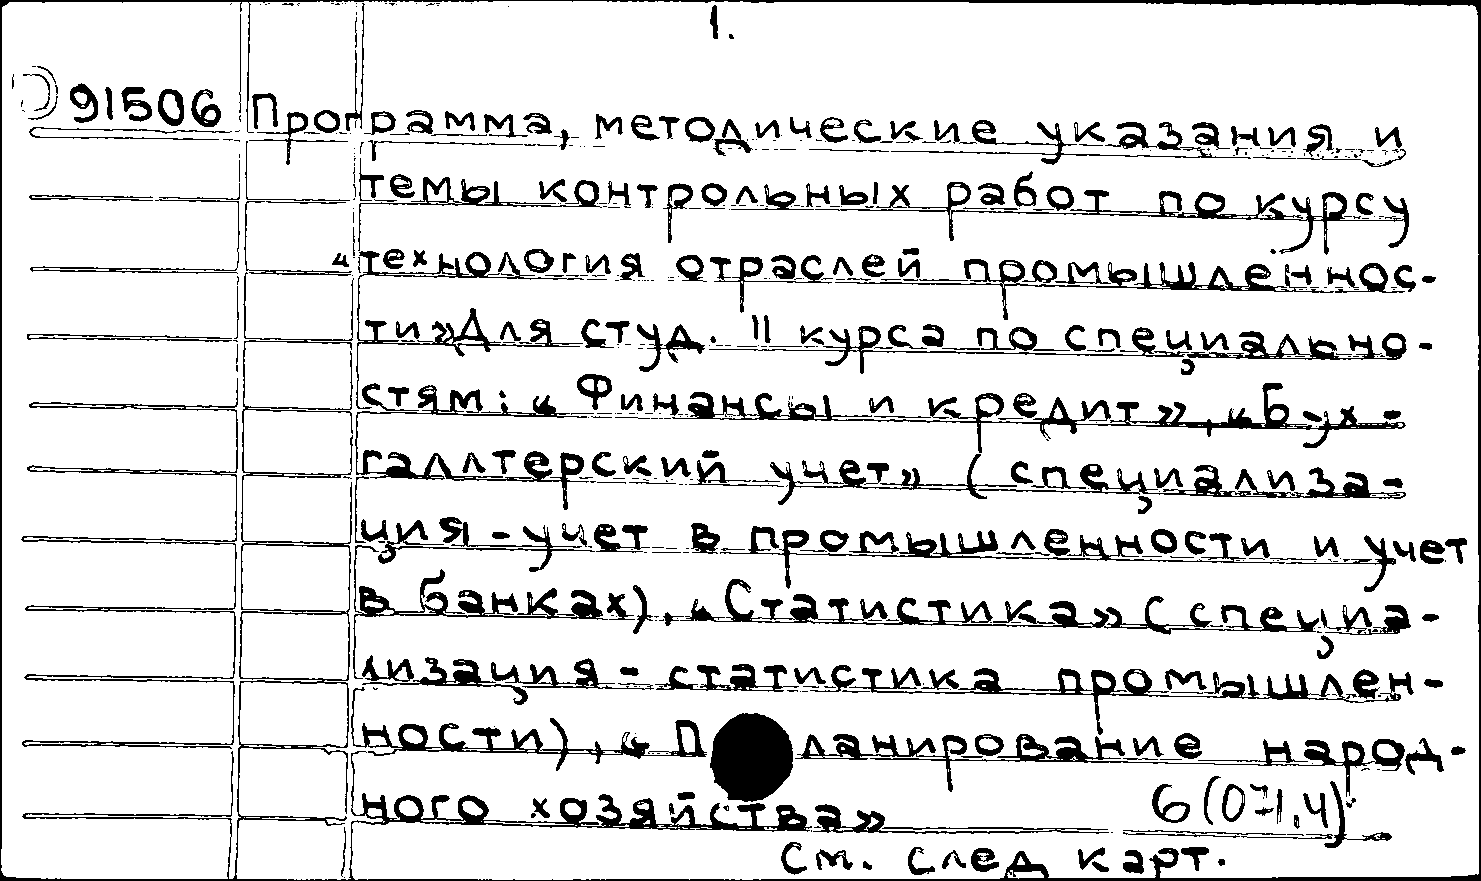 1.
91506 Программа, методические указания и
темы контрольных работ по курсу
"технология отраслей промышленнос-
ти" Для студ. II курса по специально-
стям: "Финансы и кредит", "Бух-
галлтерский учет" (специализа-
ция - учет в промышленности и учет
в банках), "Статистика" (специа-
лизация - статистика промышлен-
ности), "Планирование народ-
ного хозяйства"
6(071.4)
См. след карт.